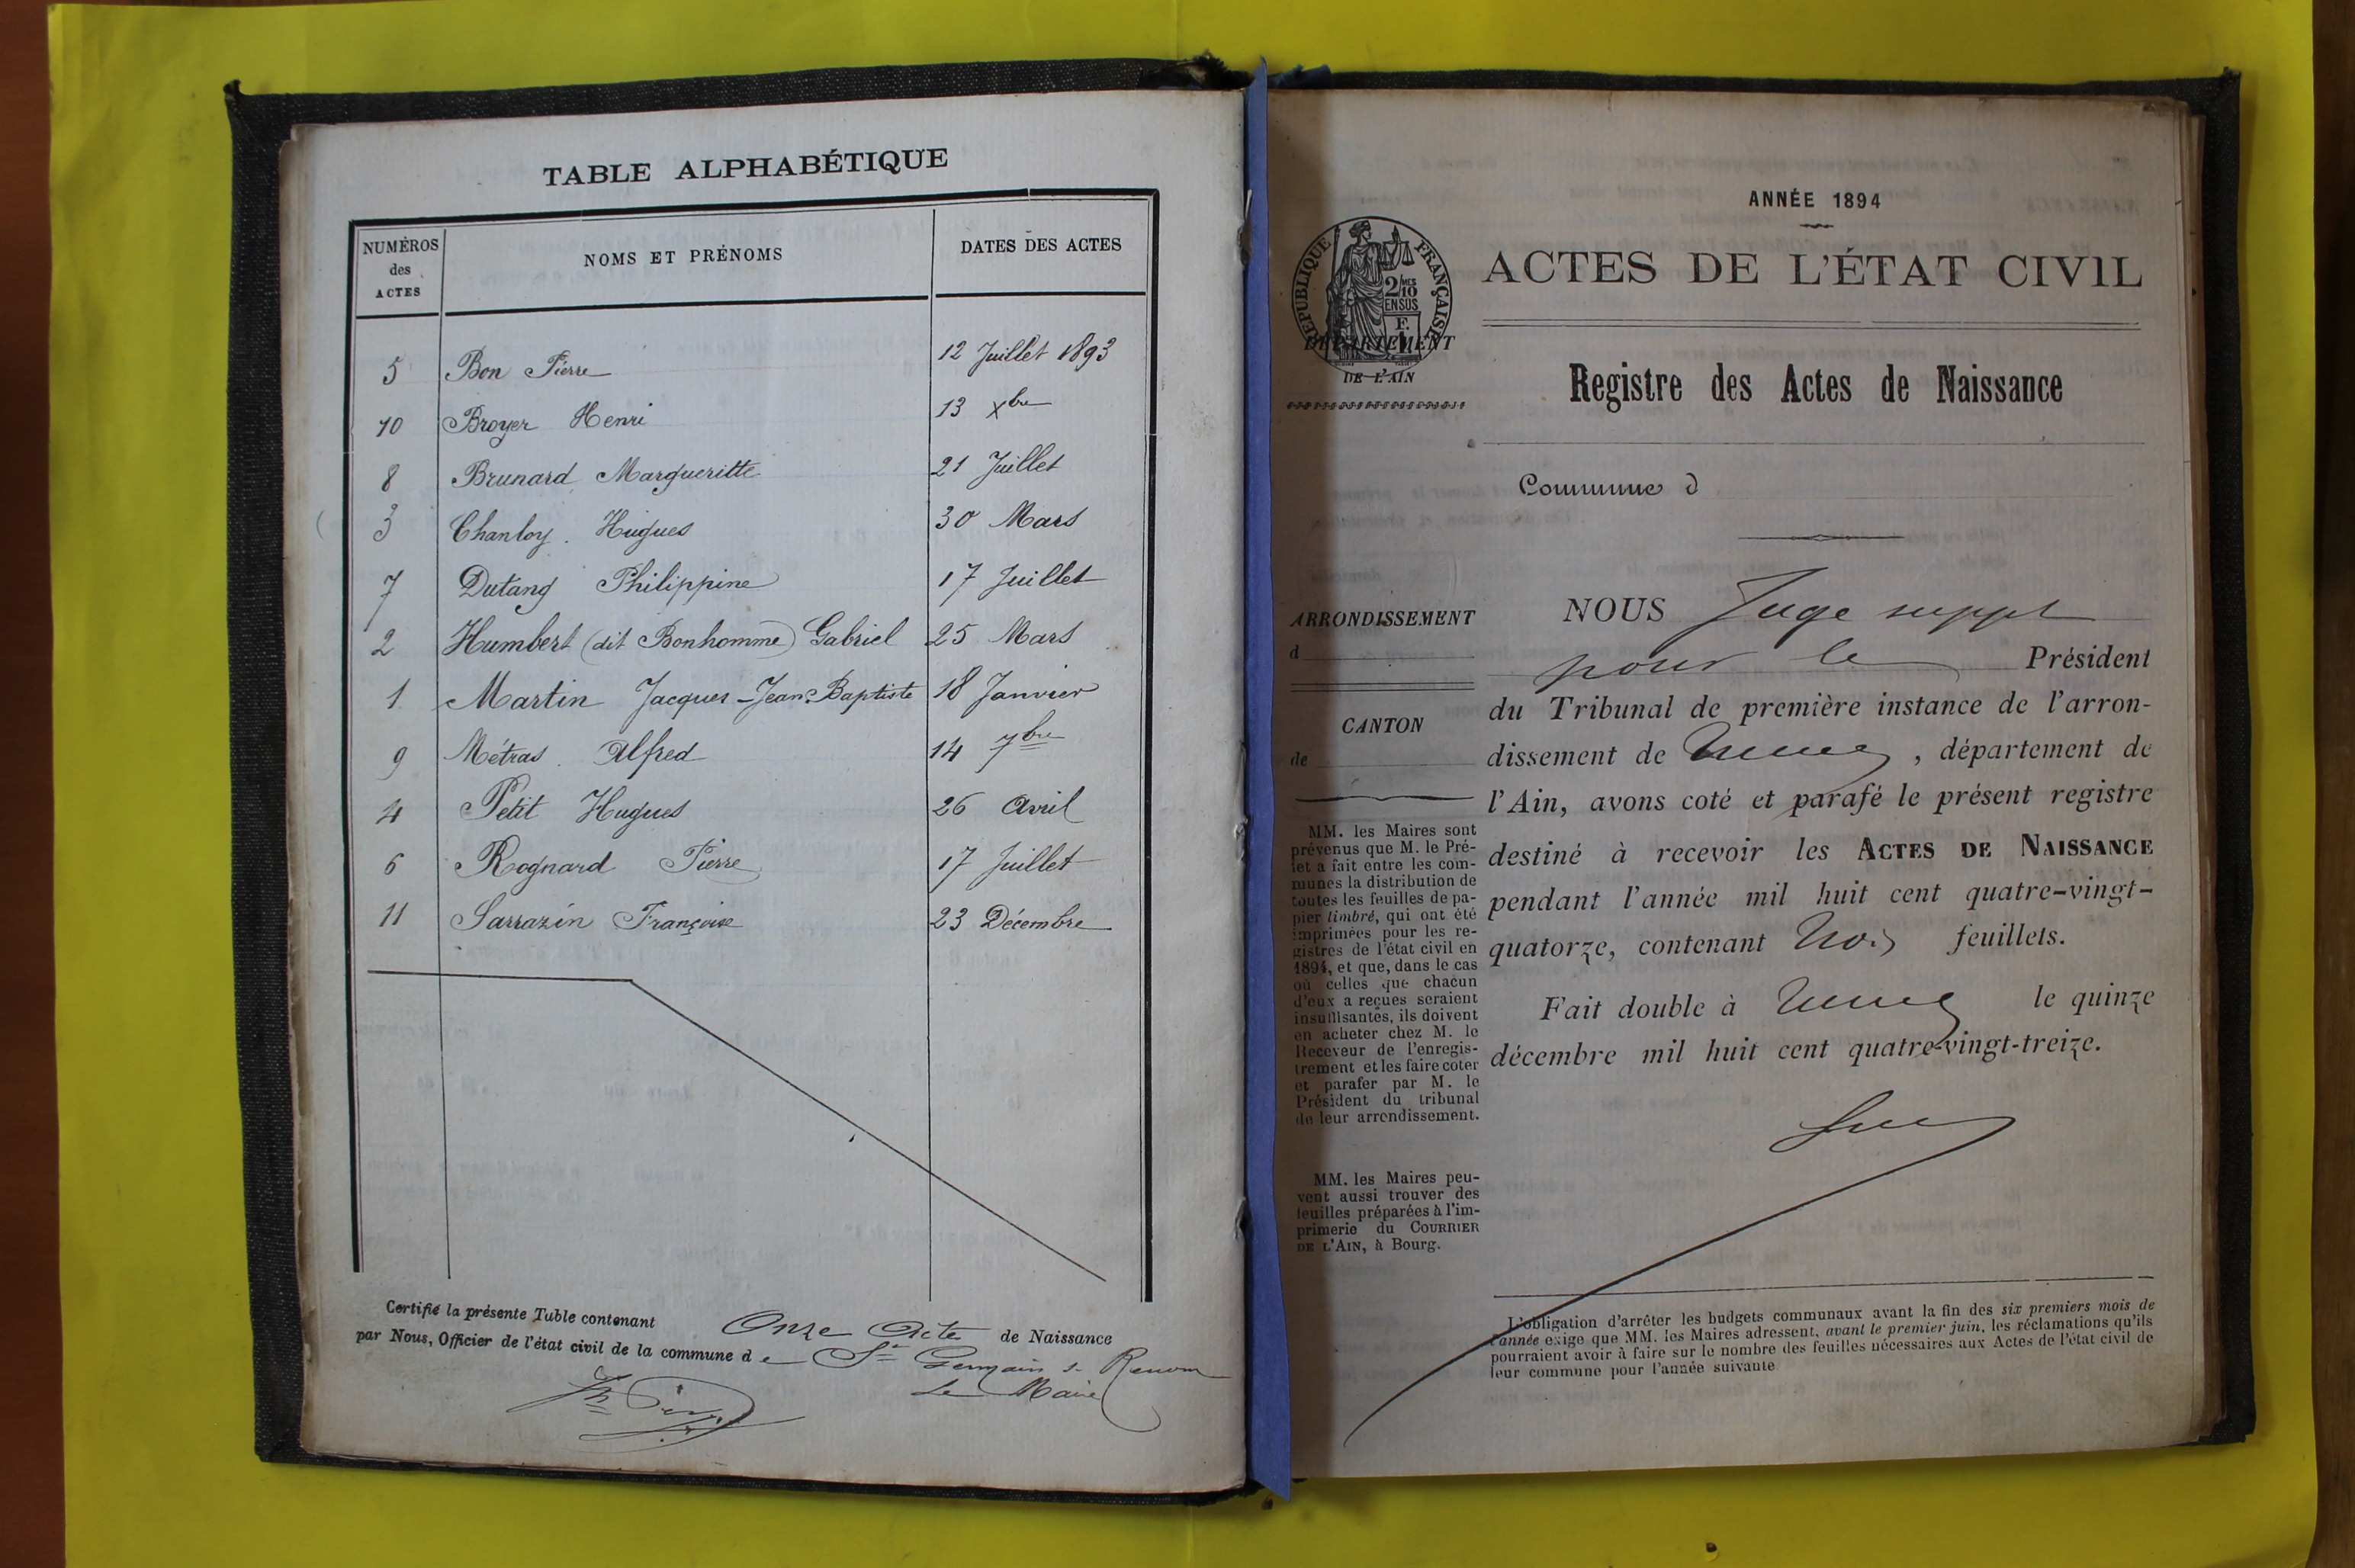 TABLE ALPHABÉTIQUE
NUMÉROS des ACTES NOMS ET PRÉNOMS DATES DES ACTES
5 Bon Pierre 12 Juillet 1893
10 Broyer Henri 13 Xbre
8 Brunard Margueritte 21 Juillet
3 Chanloy Hugues 30 Mars
7 Dutang Philippine 17 Juillet
2 Humbert (dit Bonhomme) Gabriel 25 Mars
1 Martin Jacques-Jean-Baptiste 18 Janvier
9 Métras Alfred 14 7bre
4 Petit Hugues 26 Avril
6 Rognard Pierre 17 Juillet
11 Sarrazin Françoise 23 Décembre
Certifié la présente Table contenant Onze Acte de Naissance
par Nous, Officier de l'état civil de la commune de St Germain s. Renom
Le Maire
ANNÉE 1894
ACTES DE L'ÉTAT CIVIL
RÉPUBLIQUE FRANÇAISE
2/10 MES
EN SUS
F.
1
DÉPARTEMENT
DE L'AIN
Registre des Actes de Naissance
Commune d
ARRONDISSEMENT
d
CANTON
de
MM. les Maires sont
prévenus que M. le Pré-
fet a fait entre les com-
munes la distribution de
toutes les feuilles de pa-
pier timbré, qui ont été
imprimées pour les re-
gistres de l'état civil en
1894, et que, dans le cas
où celles que chacun
d'eux a reçues seraient
insuffisantes, ils doivent
en acheter chez M. le
Receveur de l'enregis-
trement et les faire coter
et parafer par M. le
Président du tribunal
de leur arrondissement.
MM. les Maires peu-
vent aussi trouver des
feuilles préparées à l'im-
primerie du COURRIER
DE L'AIN, à Bourg.
NOUS Juge suppt
pour le Président
du Tribunal de première instance de l'arron-
dissement de , département de
l'Ain, avons coté et parafé le présent registre
destiné à recevoir les ACTES DE NAISSANCE
pendant l'année mil huit cent quatre-vingt-
quatorze, contenant trois feuillets.
Fait double à le quinze
décembre mil huit cent quatre-vingt-treize.
L'obligation d'arrêter les budgets communaux avant la fin des six premiers mois de
l'année exige que MM. les Maires adressent, avant le premier juin, les réclamations qu'ils
pourraient avoir à faire sur le nombre des feuilles nécessaires aux Actes de l'état civil de
leur commune pour l'année suivante